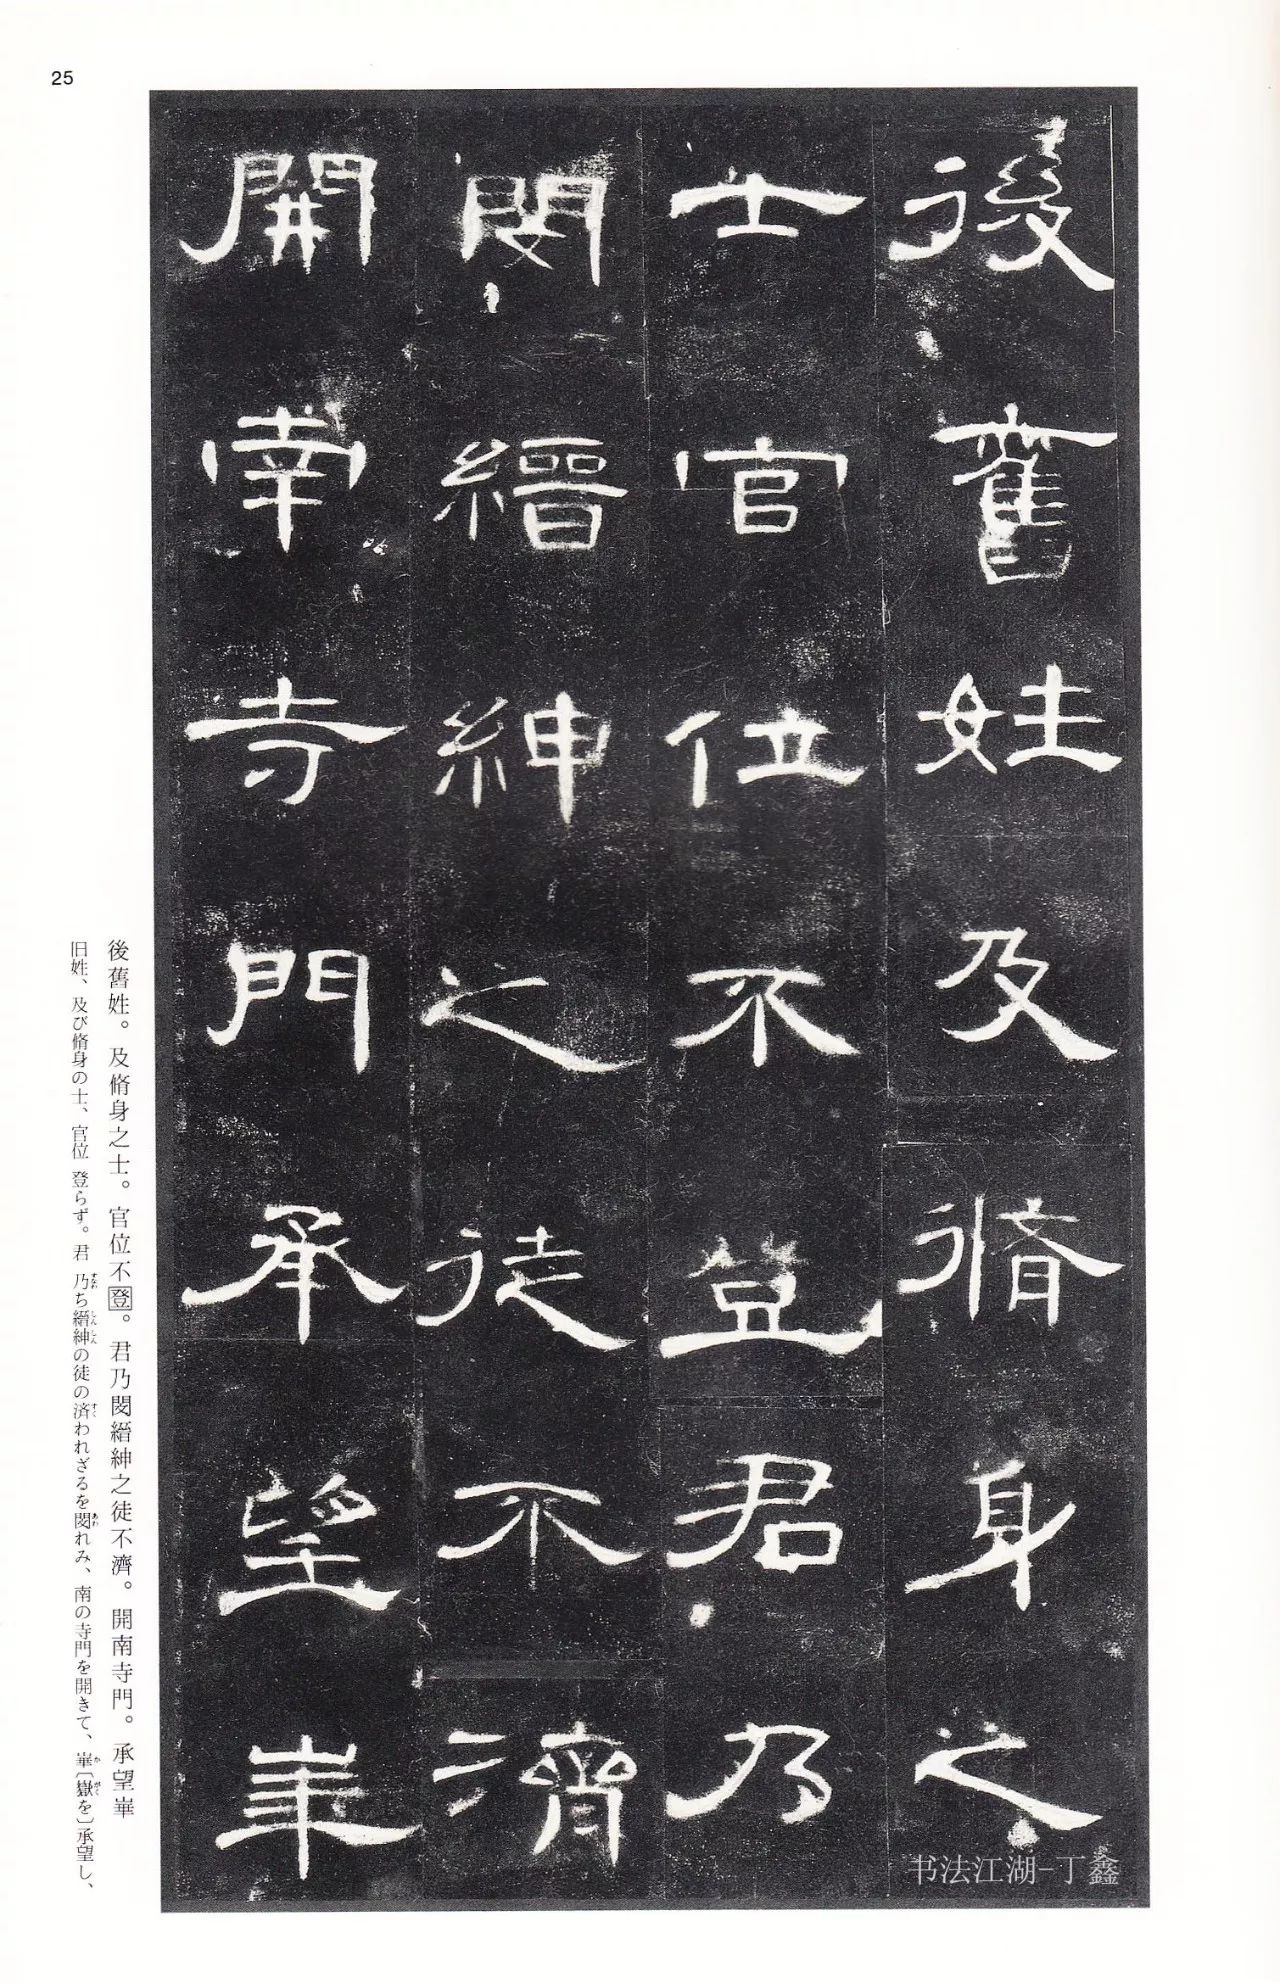 25
後舊姓及脩身之
士官位不登君乃
閔縉紳之徒不濟
開南寺門承望華
後舊姓。及脩身之士。官位不登。君乃閔縉紳之徒不濟。開南寺門。承望崋
旧姓、及び脩身の士、官位登らず。君乃ち縉紳の徒の済われざるを閔れみ、南の寺門を開きて、崋〔嶽を〕承望し、
书法江湖-丁鑫